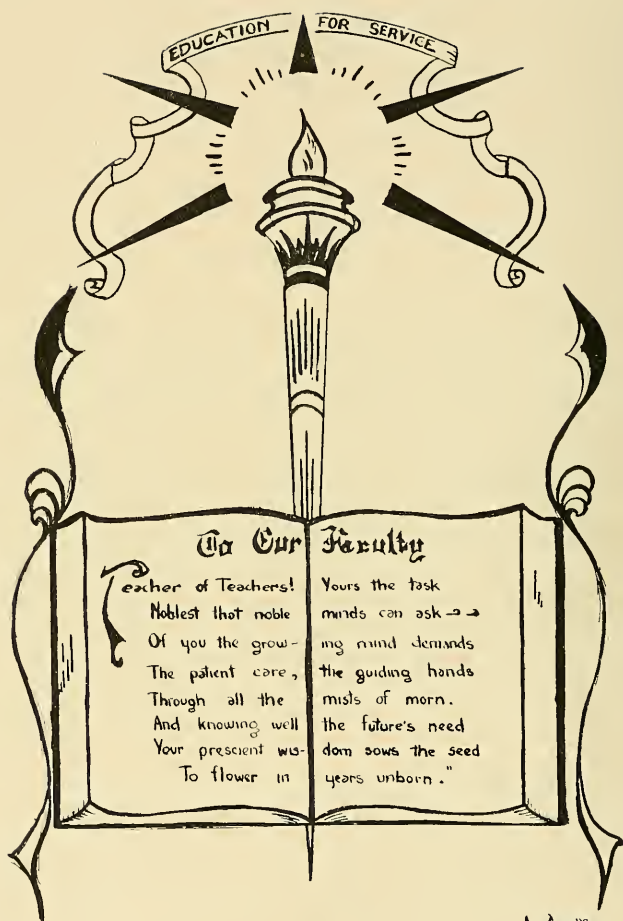 EDUCATION FOR SERVICE
To Our Faculty
Teacher of Teachers! Yours the task
Noblest that noble minds can ask
Of you the grow-ing mind demands
The patient care, the guiding hands
Through all the mists of morn.
And knowing well the future's need
Your prescient wis-dom sows the seed
To flower in years unborn."